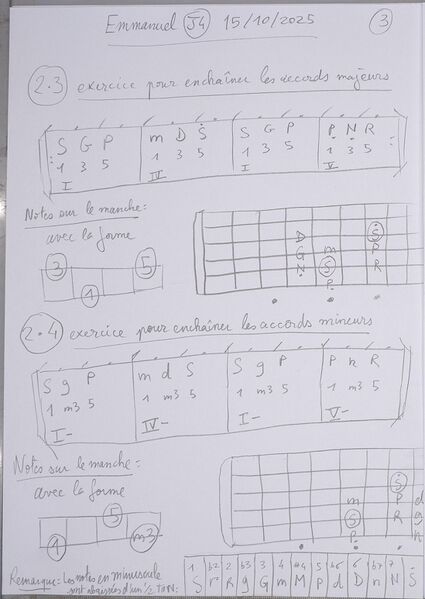 Emmanuel J4 15/10/2025 3
2.3 exercice pour enchaîner les accords majeurs
S G P m D Ṡ S G P P N R
1 3 5 1 3 5 1 3 5 1 3 5
I IV I V
Notes sur le manche:
avec la forme
3 5
1
D Ṡ
G m P
N S R
P
2.4 exercice pour enchaîner les accords mineurs
S g P m d S S g P P n R
1 m3 5 1 m3 5 1 m3 5 1 m3 5
I- IV- I- V-
Notes sur le manche:
avec la forme
5
1 m3
Ṡ
m P d
S R g
P n
1 b2 2 b3 3 4 #4 5 b6 6 b7 7
S r R g G m M P d D n N Ṡ
Remarque: Les notes en minuscule
sont abaissées d'un 1/2 TON.